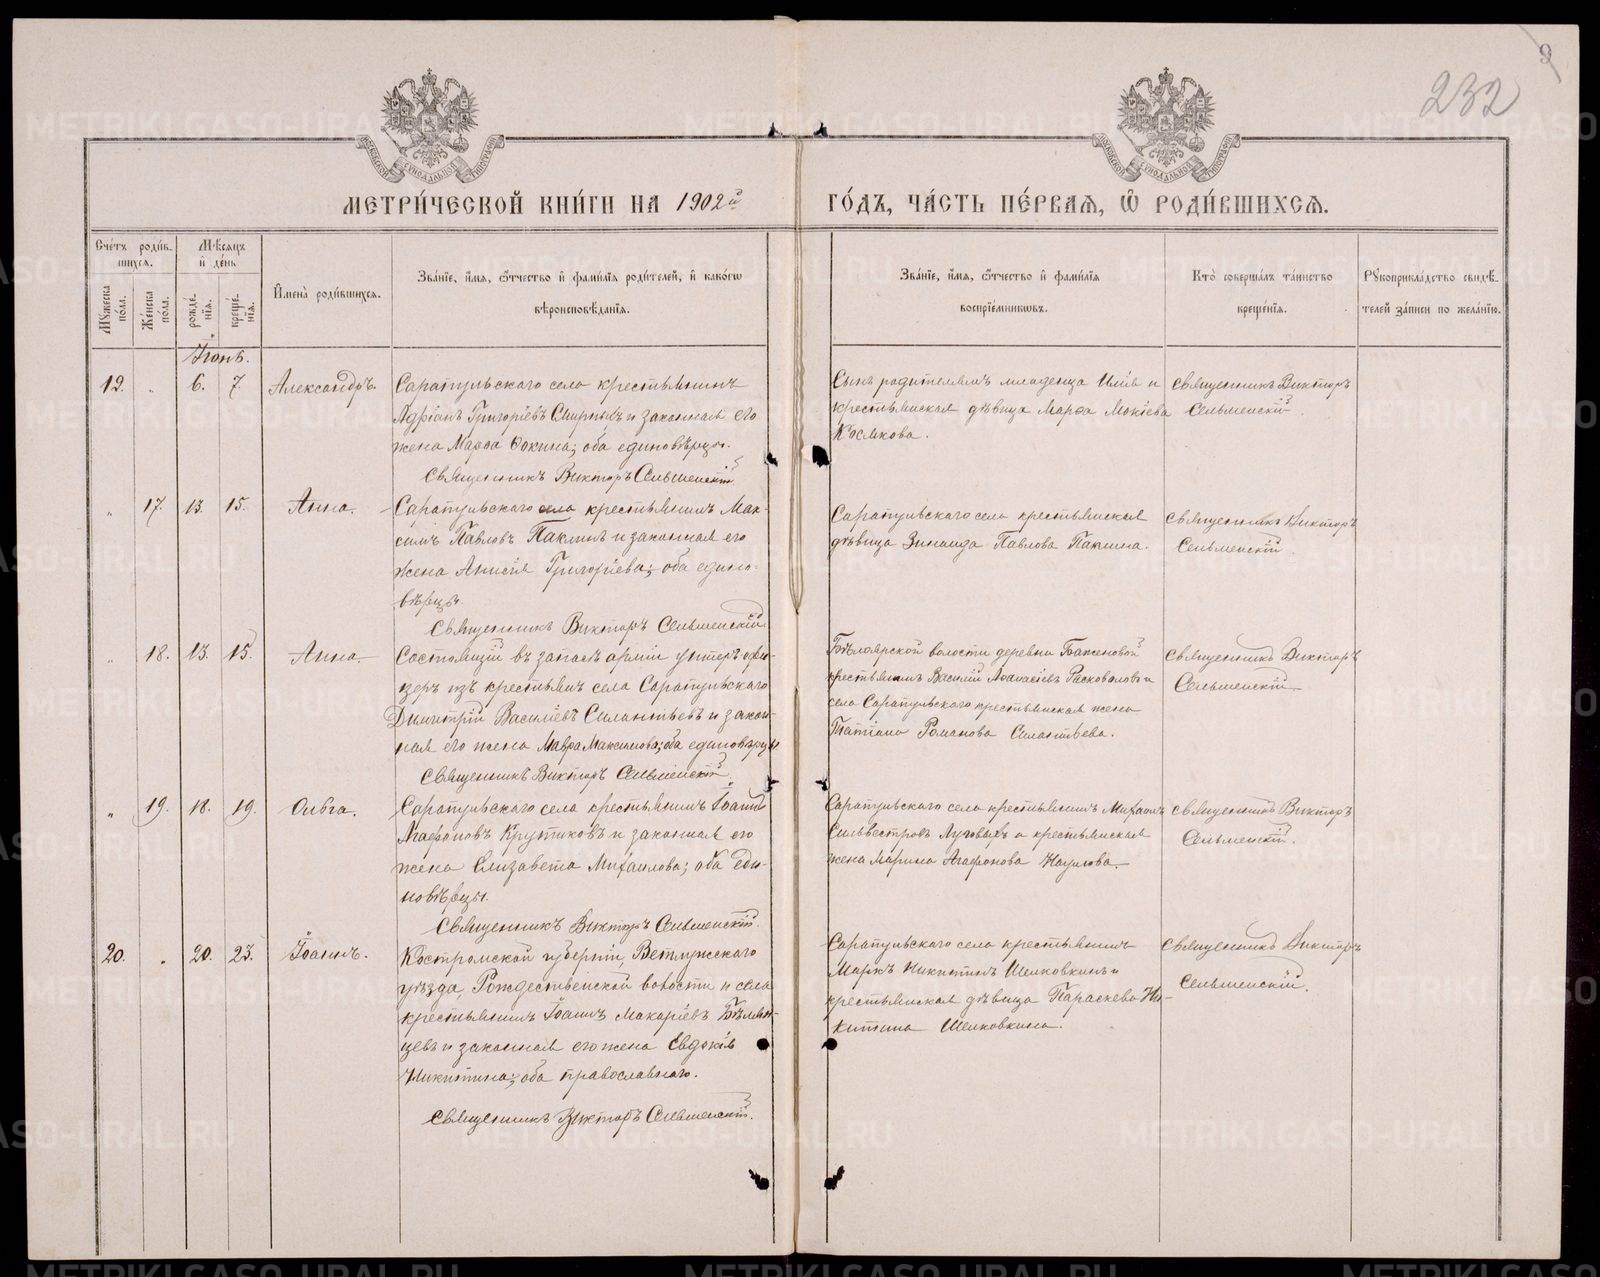 9
232
МЕТРИ́ЧЕСКОЙ КНИ́ГИ НА 1902й ГО́ДЪ, ЧА́СТЬ ПЕ́РВАЯ, Ѿ РОДИ́ВШИХСЯ.
Сче́тъ роди́в-
шихся.
Мѣ́сяцъ
и де́нь
Мужеска по́ла.
Же́нска по́ла.
рожде́-
нїя.
креще́-
нїя.
Имена̀ роди́вшихся.
Зва́нїе, и́мя, ѻ́тчество и фами́лїя роди́телей, и како́гѡ
вѣроисповѣ́данїя.
Зва́нїе, и́мя, ѻ́тчество и фами́лїя
воспрїе́мниковъ.
Кто̀ соверша́лъ та́инство
креще́нїя.
Рукоприкла́дство свидѣ́-
телей за́писи по жела́нїю.
Іюнь.
19. " 6. 7. Александръ.
Сарапульскаго села крестьянинъ
Адріанъ Григоріевъ Смирныхъ и законная его
жена Марѳа Фокина; оба единовѣрцы.
Священникъ Викторъ Сельменскій
Сынъ родителямъ младенца Илія и
крестьянская дѣвица Марѳа Мокіева
Косякова.
Священникъ Викторъ
Сельменскій
" 17. 13. 15. Анна.
Сарапульскаго села крестьянинъ Мак-
симъ Павловъ Паклинъ и законная его
жена Анисія Григоріева; оба едино-
вѣрцы.
Священникъ Викторъ Сельменскій
Сарапульскаго села крестьянская
дѣвица Зинаида Павлова Паклина.
Священникъ Викторъ
Сельменскій.
" 18. 13. 15. Анна.
Состоящій въ запасѣ арміи унтеръ-офи-
церъ изъ крестьянъ села Сарапульскаго
Димитрій Василіевъ Силантьевъ и закон-
ная его жена Мавра Максимова; оба единовѣрцы
Священникъ Викторъ Сельменскій
Бѣлоярской волости деревни
крестьянинъ Василій Аѳанасіевъ и
села Сарапульскаго крестьянская жена
Татіана Романова Силантьева.
Священникъ Викторъ
Сельменскій
" 19. 18. 19. Ольга.
Сарапульскаго села крестьянинъ Іоаннъ
Агафоновъ Крутиковъ и законная его
жена Елизавета Михаилова; оба еди-
новѣрцы.
Священникъ Викторъ Сельменскій.
Сарапульскаго села крестьянинъ Михаилъ
Сильвестровъ Луговыхъ и крестьянская
жена Марина Агафонова Наумова.
Священникъ Викторъ
Сельменскій.
20. " 20. 23. Іоаннъ.
Костромской губерніи, Ветлужскаго
уѣзда, Рождественской волости и села
крестьянинъ Іоаннъ Макаріевъ Бѣлян-
цевъ и законная его жена Евдокія
Никитина; оба православнаго.
Священникъ Викторъ Сельменскій.
Сарапульскаго села крестьянинъ
Маркъ Никитинъ Шелковкинъ и
крестьянская дѣвица Параскева Ни-
китина Шелковкина.
Священникъ Викторъ
Сельменскій.